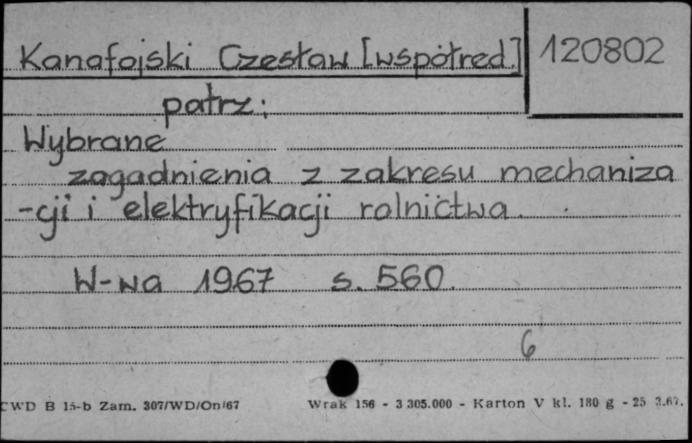 Kanafojski Czesław [współred.] 120802
patrz:
Wybrane
zagadnienia z zakresu mechaniza
-cji i elektryfikacji rolnictwa.
W-wa 1967 s. 560.
6
CWD B 15-b Zam. 307/WD/On/67 Wrak 156 - 3 305.000 - Karton V kl. 180 g - 25 3.67.